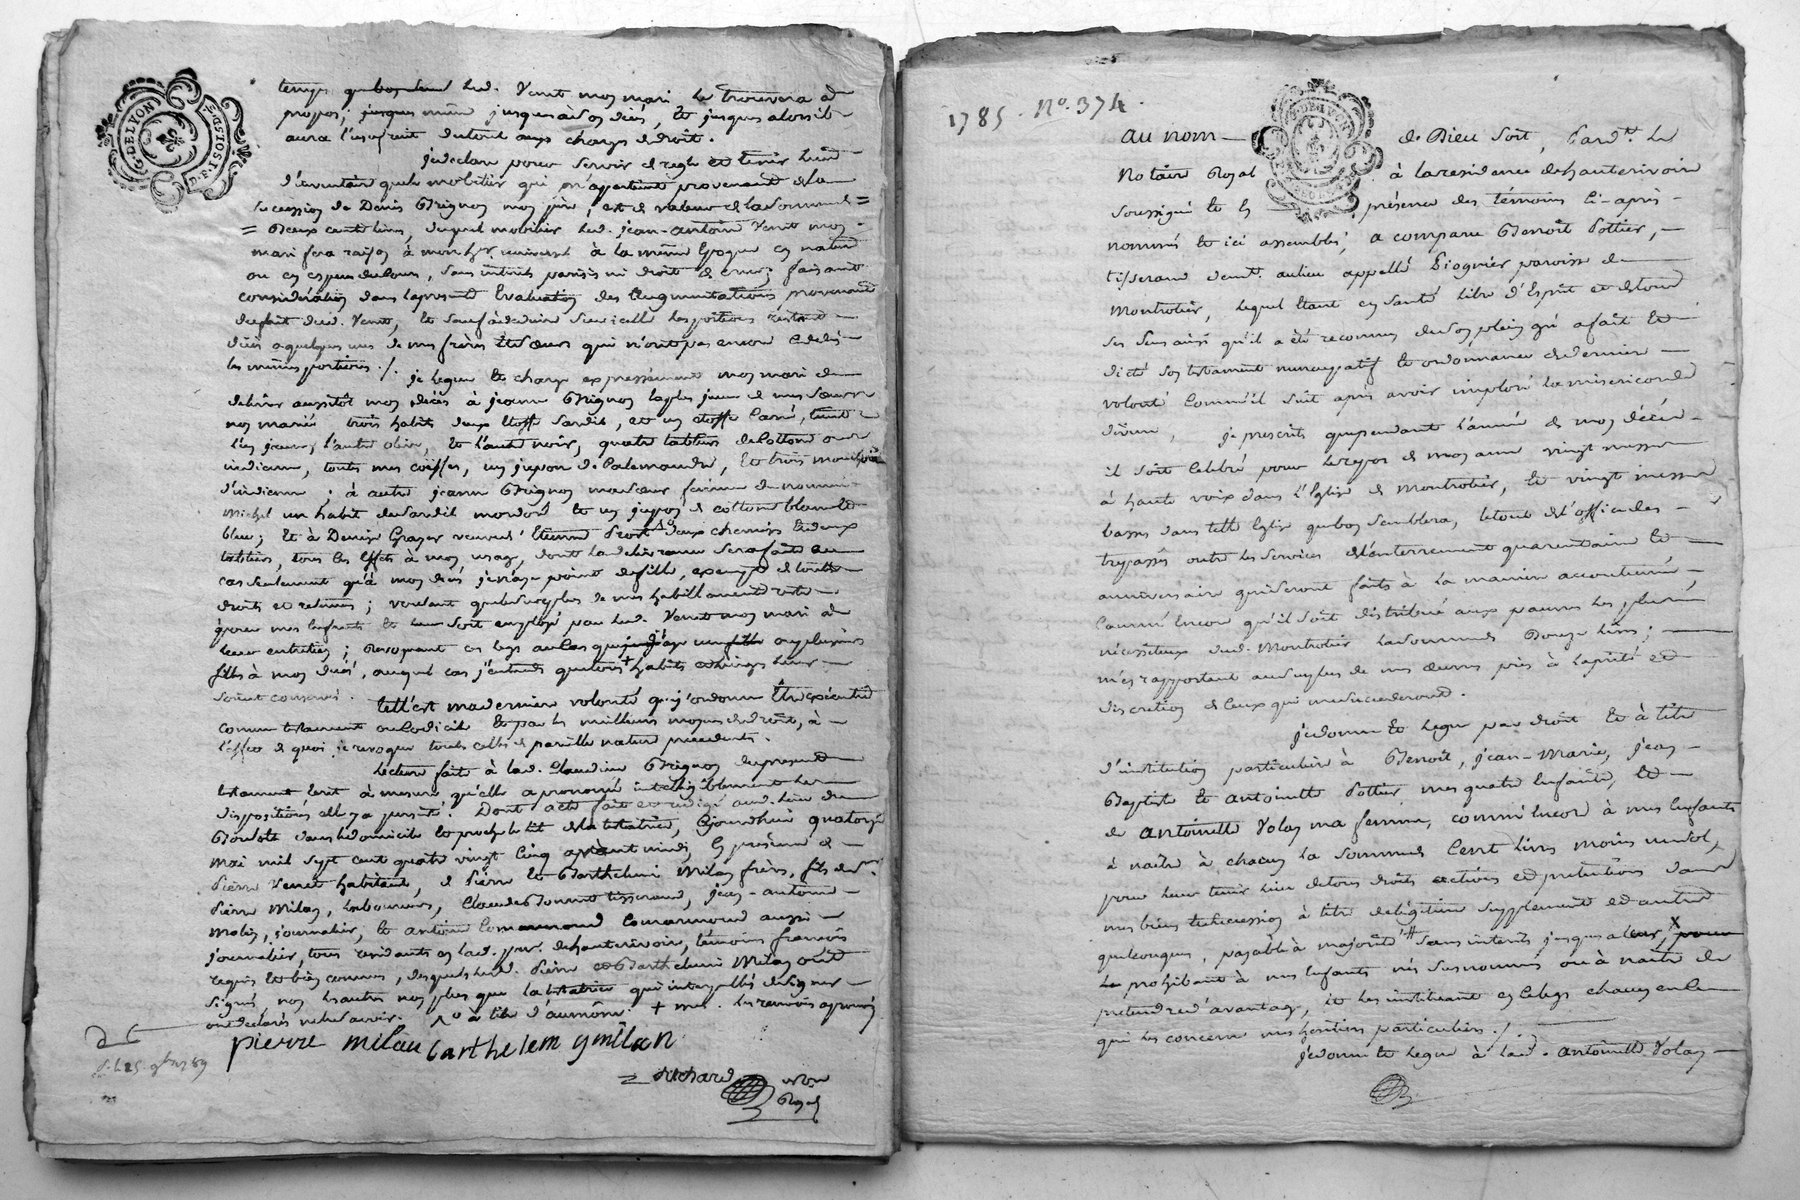 G. DE LYON
2. SOLS D. F.
temps que bon semblera aud. Venet mon mari le trouvera à
propos, jusques même jusques à son décès, et jusques alors il
aura l'usufruit du total aux charges de droit.
je declare pour servir de regle et tenir lieu
d'inventaire que le mobilier qui m'appartient provenant de la
succession de Denis Grignon mon père, est de valeur de la somme de =
= Deux cents livres, duquel mobilier led. jean-antoine Venet mon
mari fera raison à mon hér. universel à la même Epoque en nature
ou en especes de cours, sans intérêts
consideration dans la presente Evaluation des augmentations provenant
du fait dud. Venet, et sauf à deduire sur icelle les portions restant
dües a quelques uns de mes frères et sœurs qui n'ont pas encore cedés
les mêmes portions ./.
je legue et charge expressement mon mari de
delivrer aussitôt mon décès à jeanne Grignon la plus jeune de mes sœurs
non mariée trois habits deux Etoffe Sardis, et un etoffe Carré, teints
l'un jaune, l'autre olive, et l'autre noir, quatre tabliers de Cotton ou
indienne, toutes mes coiffes, un jupon de Calemandre, et trois mouchoirs
d'indienne ; à autre jeanne Grignon ma sœur femme de
Michel un habit de Sardis mordoré et un jupon de cotton blanc et
bleu ; et à Denise veuve d'Etienne deux chemises et deux
tabliers, tous les Effets à mon usage, dont la delivrance sera faite au
cas seulement qu'à mon décès je n'aye point de fille, exempte de tous
droits et retenues ; voulant que le surplus de mes habillements reste
pour mes Enfants et leur soit employé par led. Venet mon mari à
leur entretien ; Revoquant ces legs au cas que j'aye une fille ou plusieurs
filles à mon décès, auquel cas j'entends que tous + habits et linges leur
soient conservés.
tell'est ma derniere volonté que j'ordonne Etre exécutée
comme testament ou Codicile et par les meilleurs moyens de droit, à
l'effet de quoi je revoque toutes celles de pareille nature precedentes.
Lecture faite à lad. Claudine Grignon du present
testament écrit à mesure qu'elle a prononcé intelligiblement les
dispositions elle y a persisté. Dont acte fait et redigé aud. lieu de
dans le domicile et proche le lit de la testatrice, Cejourdhui quatorze
Mai mil sept cent quatre vingt Cinq avant midi, En presence de
Pierre Venet habitant, de Pierre et Barthelemi Milan frères, fils de
Pierre Milan, laboureurs, Claude tisserand, jean-antoine
journalier, et antoine Commarmond aussi
journalier, tous residants en lad. par. de hauterivoire, témoins
requis et bien connus, desquels led. Pierre et Barthelemi Milan ont
signé, non les autres non plus que la testatrice qui interpellés de signer
ont declarés ne le savoir. à titre d'aumône + mes. les renvois approuvés
pierre milan barthelem y milan
= Richard
Royal
1785. N°. 374.
G. DE LYON
au nom — de Dieu soit, Pard.t le
Notaire Royal à la residence de hauterivoire
soussigné et En présence des témoins Ci-après
nommés et ici assemblés, a comparu Benoit Pottier,
tisserand demt. au lieu appellé Piognier paroisse de
Montrotier, lequel Etant en santé libre d'Esprit et de tous
ses sens ainsi qu'il a été reconnu de son plein gré a fait et
dicté son testament nuncupatif et ordonnance de derniere
volonté Comm'il suit après avoir imploré la misericorde
divine, je prescrits que pendant l'année de mon décés
il soit Celebré pour le repos de mon ame vingt messes
à haute voix dans l'Eglise de Montrotier, et vingt messes
basses dans tell'Eglise que bon semblera, le tout de l'office des
trepassés outre les services de l'enterrement quarantaine et
anniversaire qui seront faits à la maniere accoutumée,
Comm'Encore qu'il soit distribué aux pauvres les plus
nécessiteux dud. Montrotier la somme de Douze livres ;
m'en rapportant au surplus de mes œuvres pies à la pieté et
discretion de Ceux qui me succederont.
je donne et legue par droit et à titre
d'institution particuliere à Benoit, jean-Marie, jean
Baptiste et antoinette Pottier mes quatre Enfants, et
de antoinette Volay ma femme, comm'Encore à mes Enfants
à naître à chacun la somme de Cent livres moins un sol,
pour leur tenir lieu de tous droits actions et pretentions dans
mes biens et succession à titre de legitime supplement et autres
quelconques, payable à majorité # sans interêts jusques alors, X pour
Le prohibant à mes Enfants nés susnommés ou à naître de
pretendre d'avantage, et les instituant en ce legs chacun en ce
qui les concerne mes heritiers particuliers ./.
je donne et legue à lad. antoinette Volay